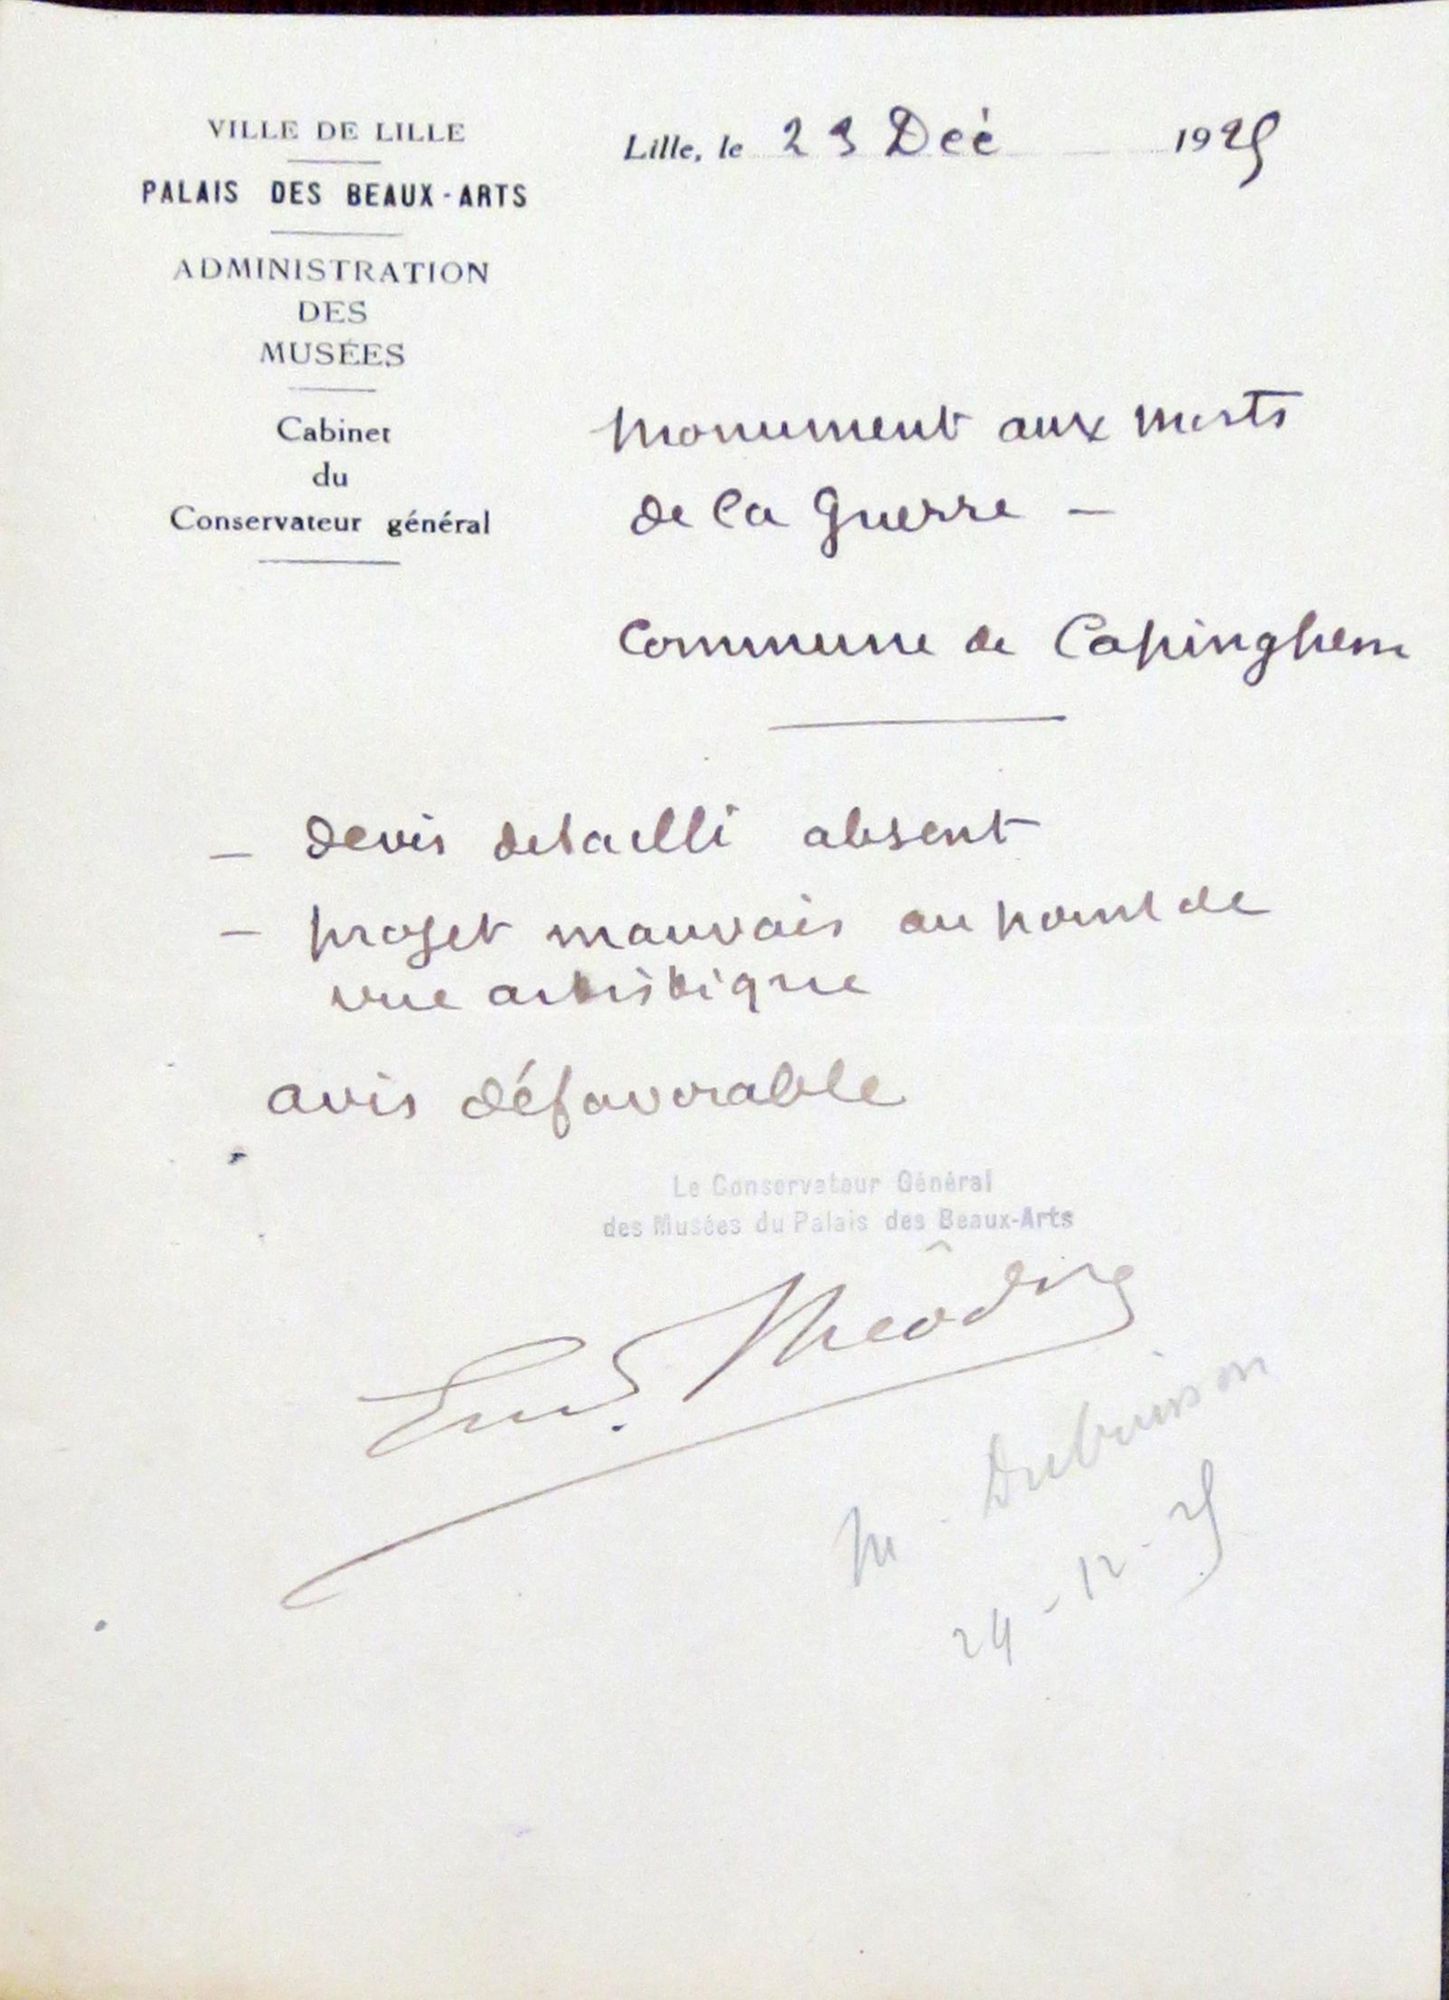 VILLE DE LILLE
PALAIS DES BEAUX-ARTS
ADMINISTRATION
DES
MUSÉES
Cabinet
du
Conservateur général
Lille, le 23 Déc 1925
Monument aux morts
de la guerre -
Commune de Capinghem
- devis detaillé absent
- projet mauvais au point de
vue artistique
avis défavorable
Le Conservateur Général
des Musées du Palais des Beaux-Arts
Em. Théodore
M. Dubuisson
24-12-25